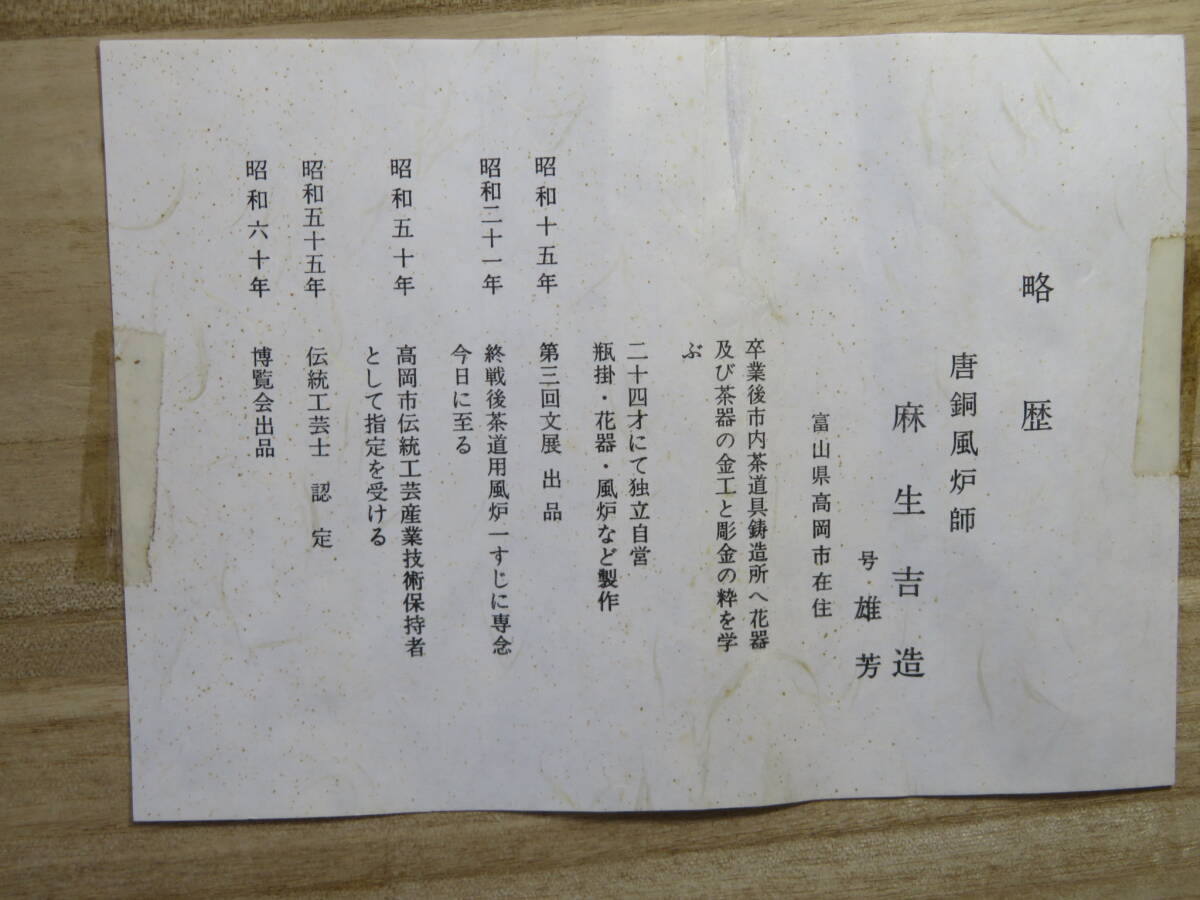 略歴
唐銅風炉師
麻生吉造
号・雄芳
富山県高岡市在住
卒業後市内茶道具鋳造所へ花器
及び茶器の金工と彫金の粋を学
ぶ
二十四才にて独立自営
瓶掛・花器・風炉など製作
昭和十五年 第三回文展出品
昭和二十一年 終戦後茶道用風炉一すじに専念
今日に至る
昭和五十年 高岡市伝統工芸産業技術保持者
として指定を受ける
昭和五十五年 伝統工芸士 認定
昭和六十年 博覧会出品